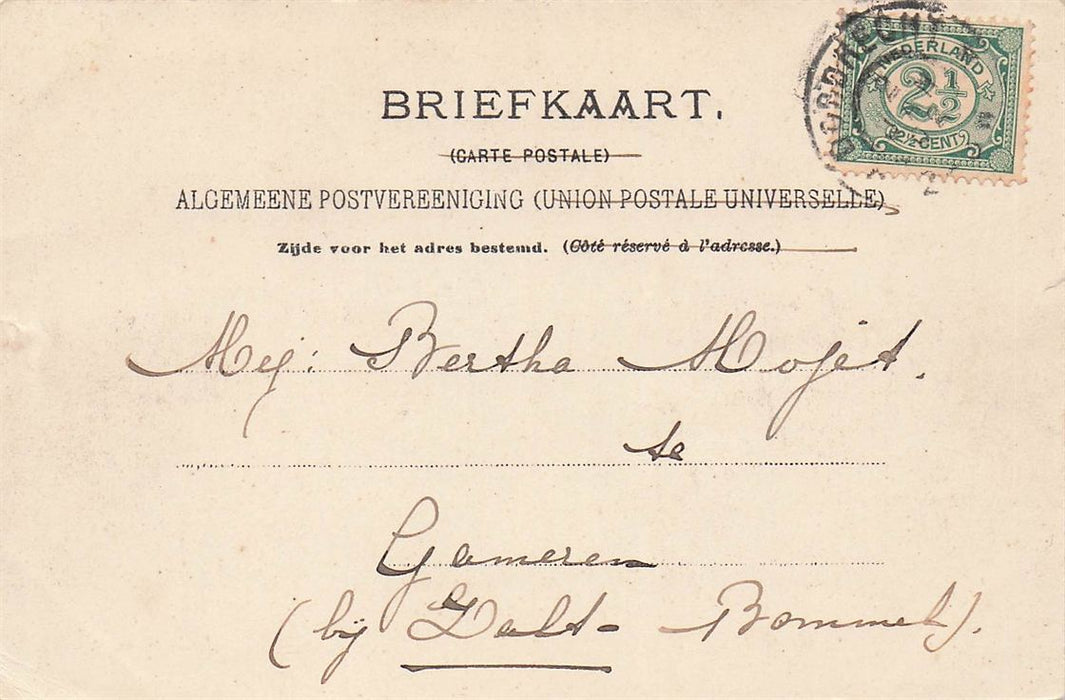 DORDRECHT
NEDERLAND
2 1/2
2½ CENT
BRIEFKAART.
(CARTE POSTALE)
ALGEMEENE POSTVEREENIGING (UNION POSTALE UNIVERSELLE)
Zijde voor het adres bestemd. (Côté réservé à l'adresse.)
Mej: Bertha Mojet.
te
Gameren
(bij Zalt-Bommel).